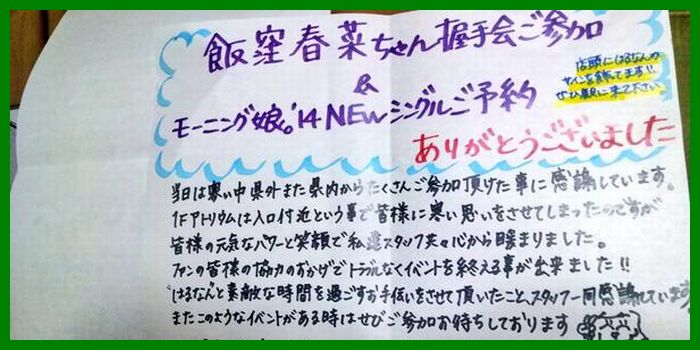 飯窪春菜ちゃん握手会ご参加
&
モーニング娘。'14 NEWシングルご予約
ありがとうございました
店頭にはるなんの
サインを飾ってます!!
ぜひ観に来て下さい
当日は寒い中県外また県内からたくさんご参加頂けた事に感謝しています。
1Fアトリウムは入口付近という事で皆様に寒い思いをさせてしまったのですが
皆様の元気なパワーと笑顔で私達スタッフ共々心から暖まりました。
ファンの皆様の協力のおかげでトラブルなくイベントを終える事が出来ました!!
"はるなん"と素敵な時間を過ごすお手伝いをさせて頂いたこと、スタッフ一同感謝しています
またこのようなイベントがある時はぜひご参加お待ちしております